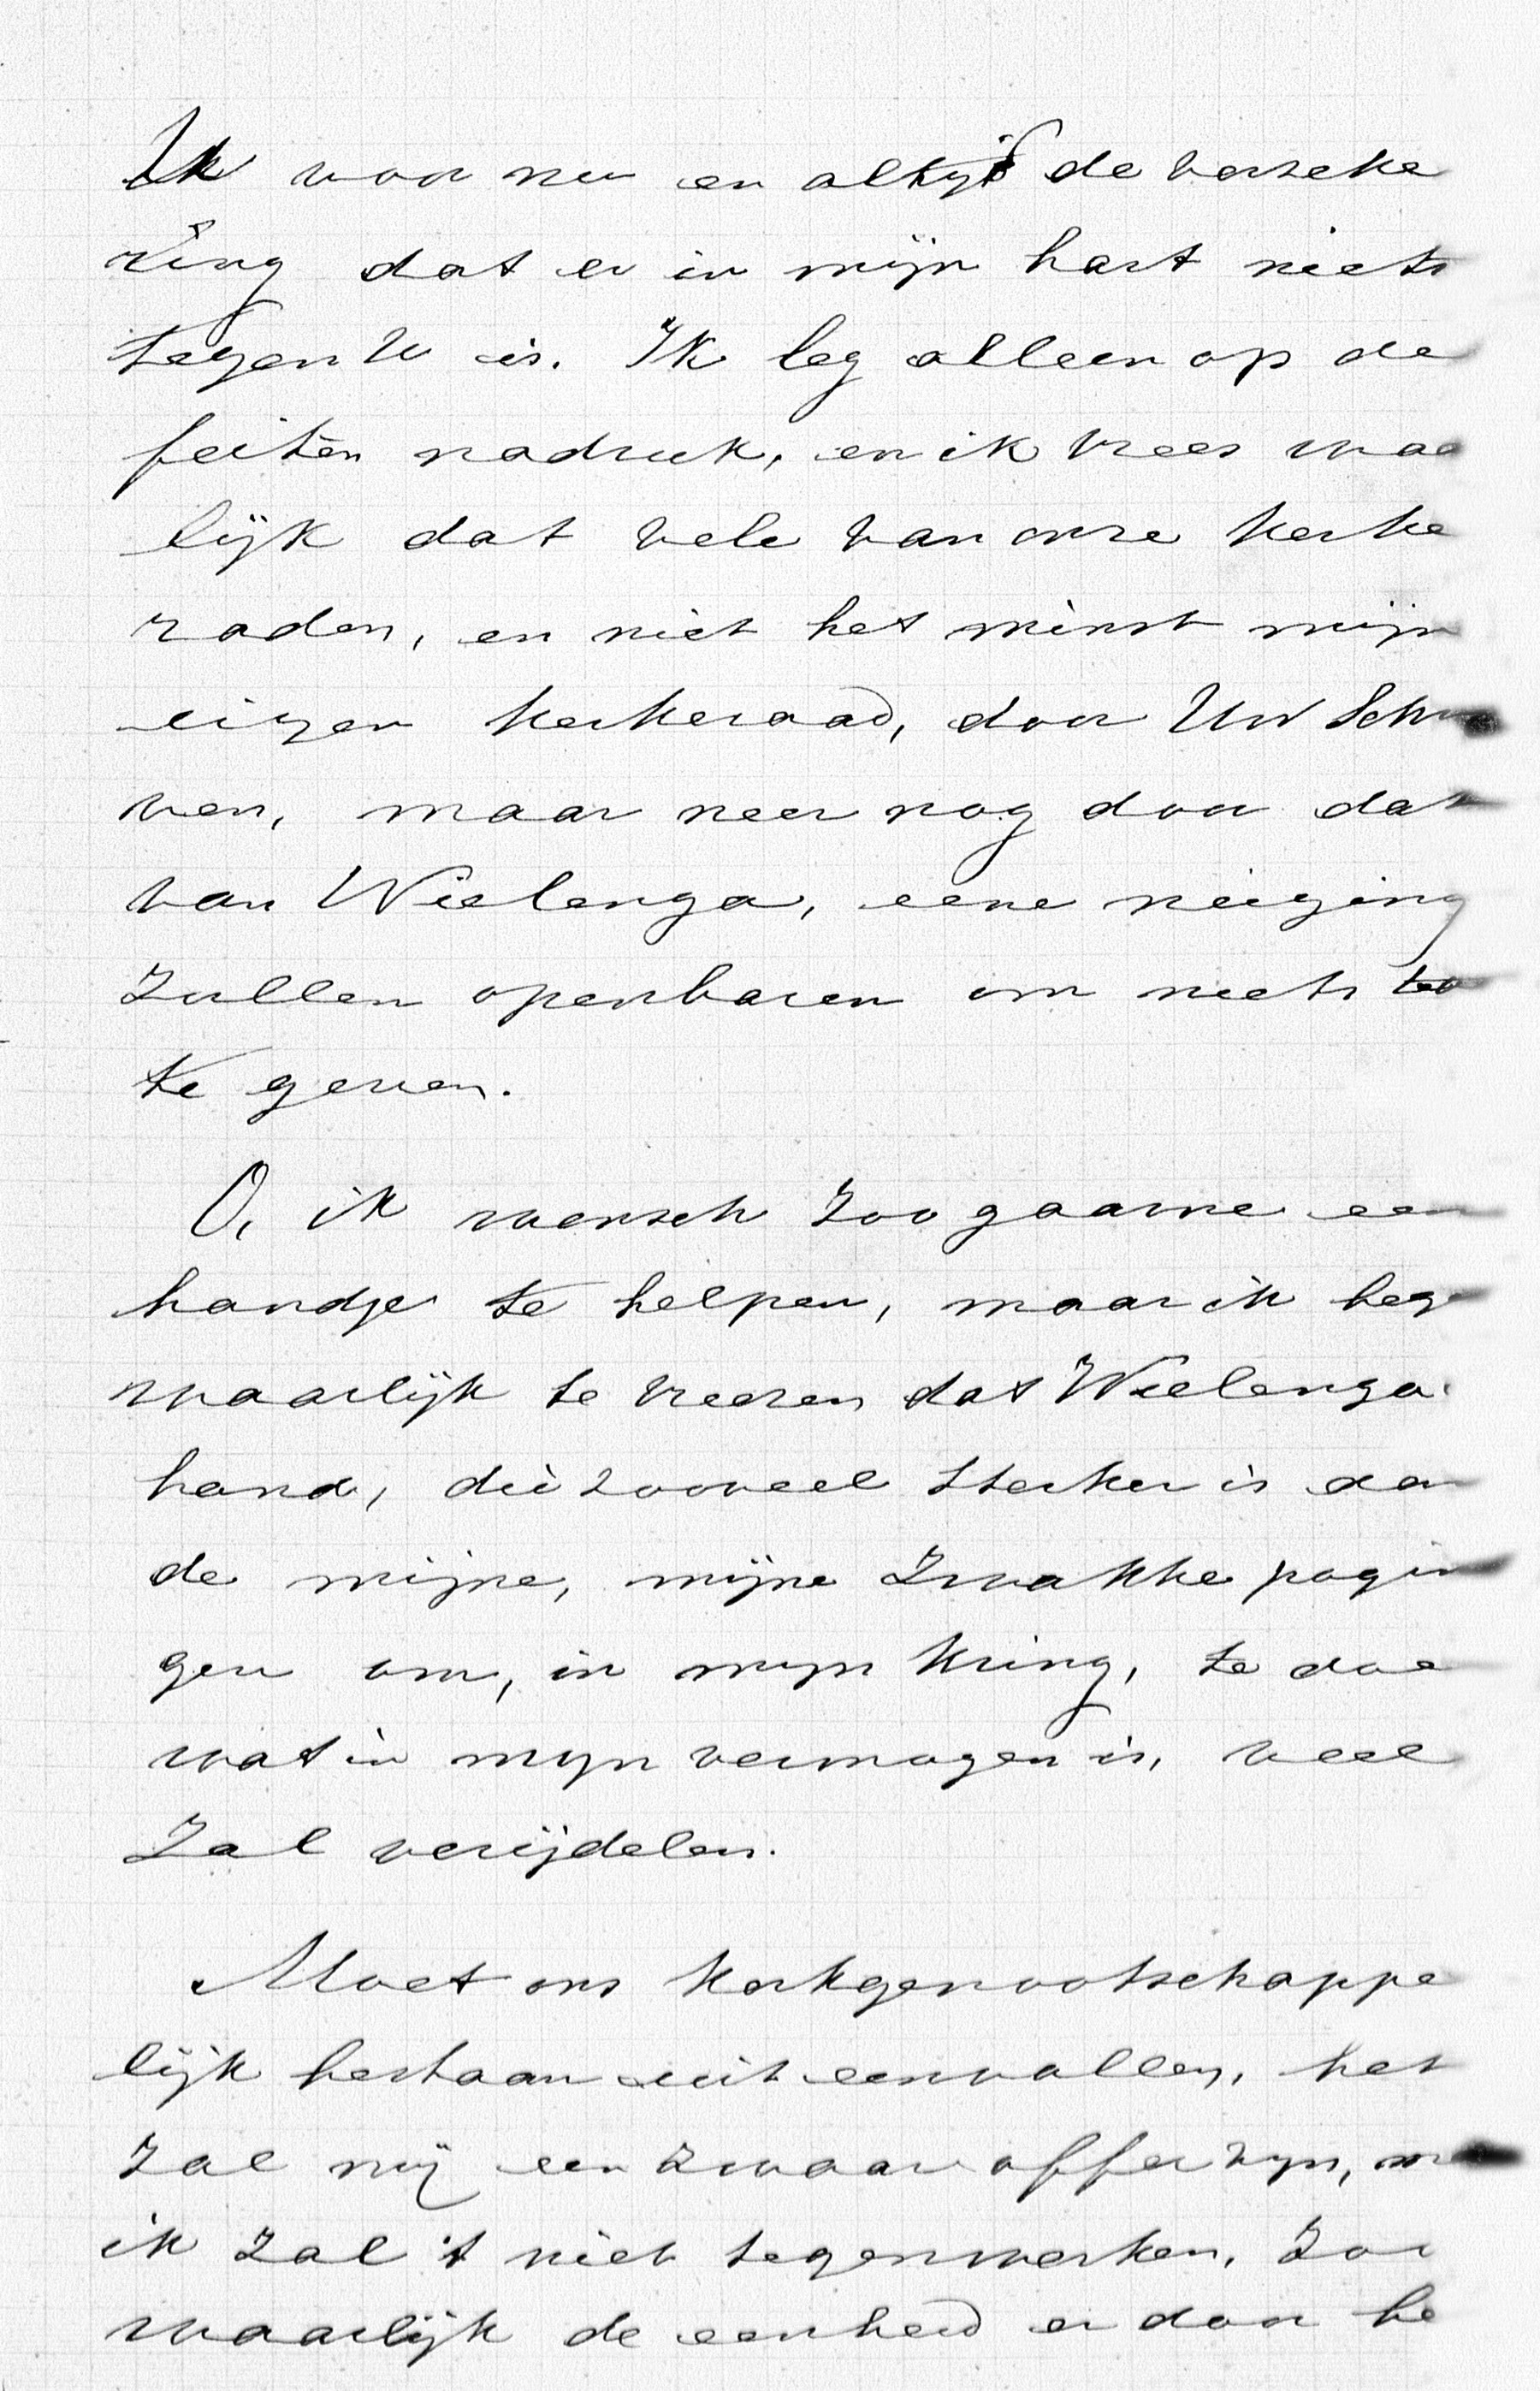 Ik voor nu en altijd de verzeke
ring dat er in mijn hart niets
tegen U is. Ik leg alleen op de
feiten nadruk, en ik vrees waa
lijk dat vele van onze kerke
raden, en niet het minst mijn
eigen kerkeraad, door Uw Schr
ven, maar meer nog door dat
van Wielenga, eene neiging
zullen openbaren om niets
te geven.
O, ik wensch zoo gaarne een
handje te helpen, maar ik beg
waarlijk te vreezen dat Wielenga
hand, die zooveel sterker is dan
de mijne, mijne zwakke pogin
gen om, in mijn kring, te doe
wat in mijn vermogen is, veel
zal verijdelen.
Moet ons kerkgenootschappe
lijk bestaan uit eenvallen, het
zal mij een zwaar offer zijn, ma
ik zal 't niet tegenwerken, zoo
waarlijk de eenheid er door be